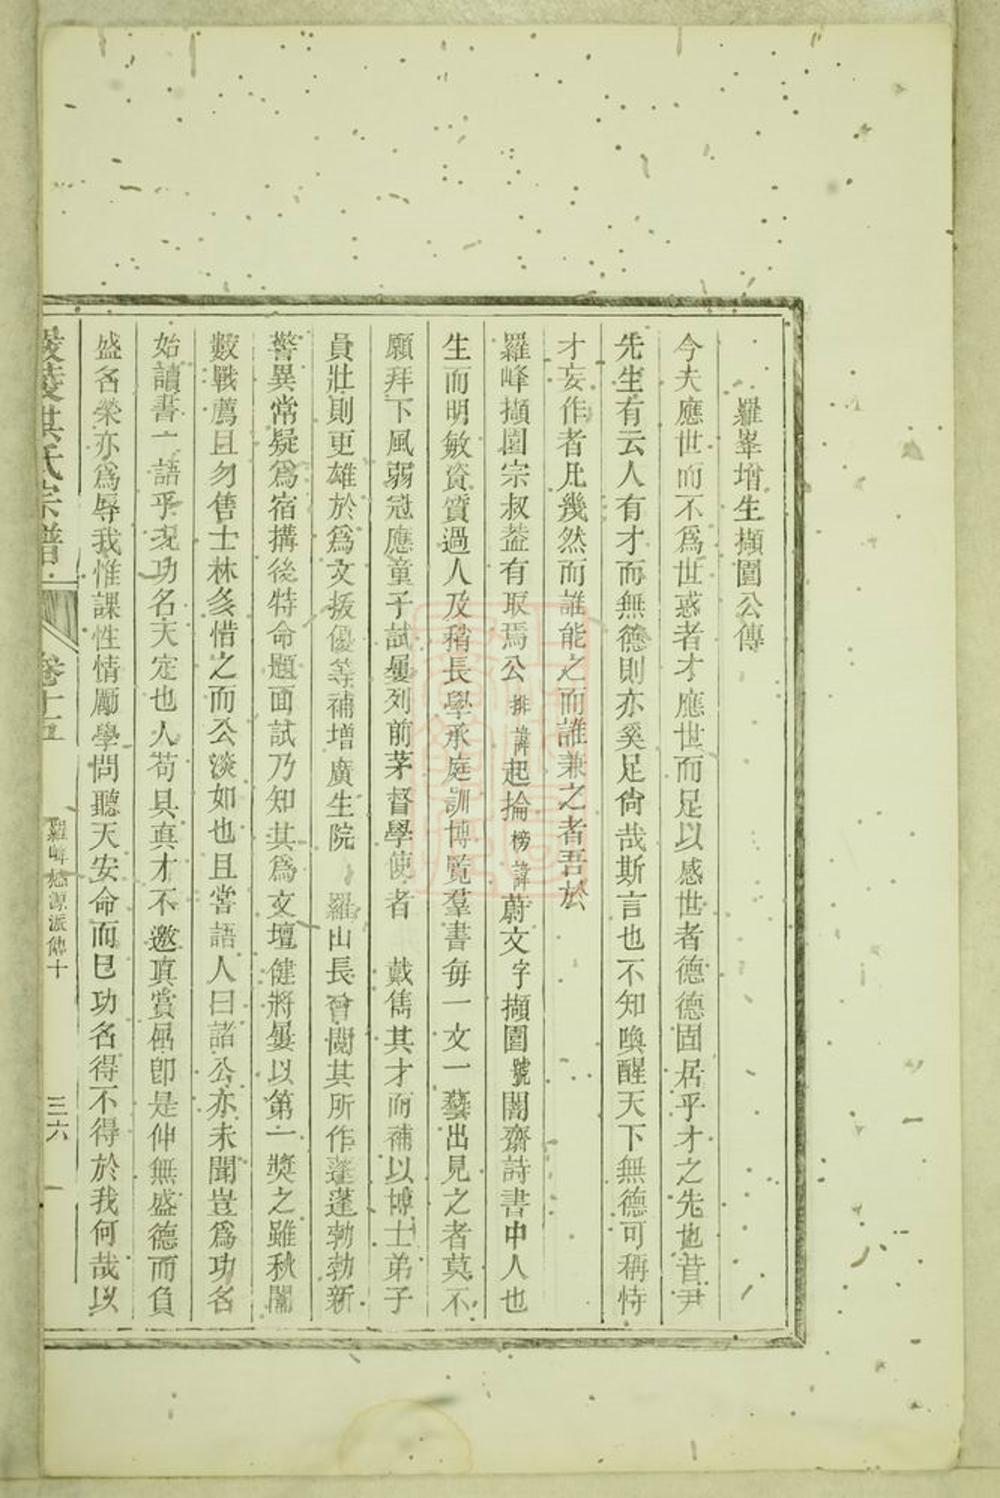 羅峯增生擷園公傳
今夫應世而不爲世惑者才應世而足以感世者德德固居乎才之先也昔尹
先生有云人有才而無德則亦奚足尙哉斯言也不知喚醒天下無德可稱恃
才妄作者凡幾然而誰能之而誰兼之者吾於
羅峰擷園宗叔葢有取焉公排諱起掄榜諱蔚文字擷園號闇齋詩書中人也
生而明敏資質過人及稍長學承庭訓博覧羣書每一文一藝出見之者莫不
願拜下風弱冠應童子試屢列前茅督學使者 戴雋其才而補以博士弟子
員壯則更雄於爲文拔優等補增廣生院 羅山長曾閱其所作蓬蓬勃勃新
警異常疑爲宿搆後特命題面試乃知其爲文壇健將屢以第一奬之雖秋闈
數戰薦且勿售士林多惜之而公淡如也且嘗語人曰諸公亦未聞豈爲功名
始讀書一語乎况功名天定也人苟具真才不邀真賞屈卽是伸無盛德而負
盛名榮亦爲辱我惟課性情勵學問聽天安命而巳功名得不得於我何哉以
洪氏宗譜 卷十五 羅峰 源派傳十 三六